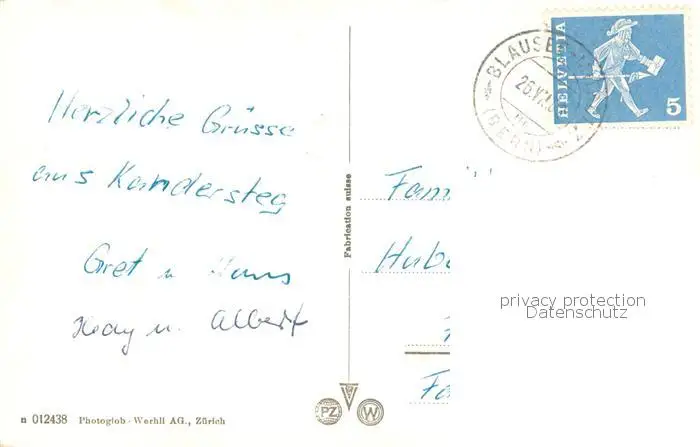 Herzliche Grüsse
aus Kandersteg
Gret u Hans
Hedy u. Albert
n 012438 Photoglob-Wehrli AG., Zürich
Fabrication suisse
PZ W
HELVETIA
5
BLAUSE
26.VI.
(BERN)
Fam
Hub
privacy protection
Datenschutz
Fa